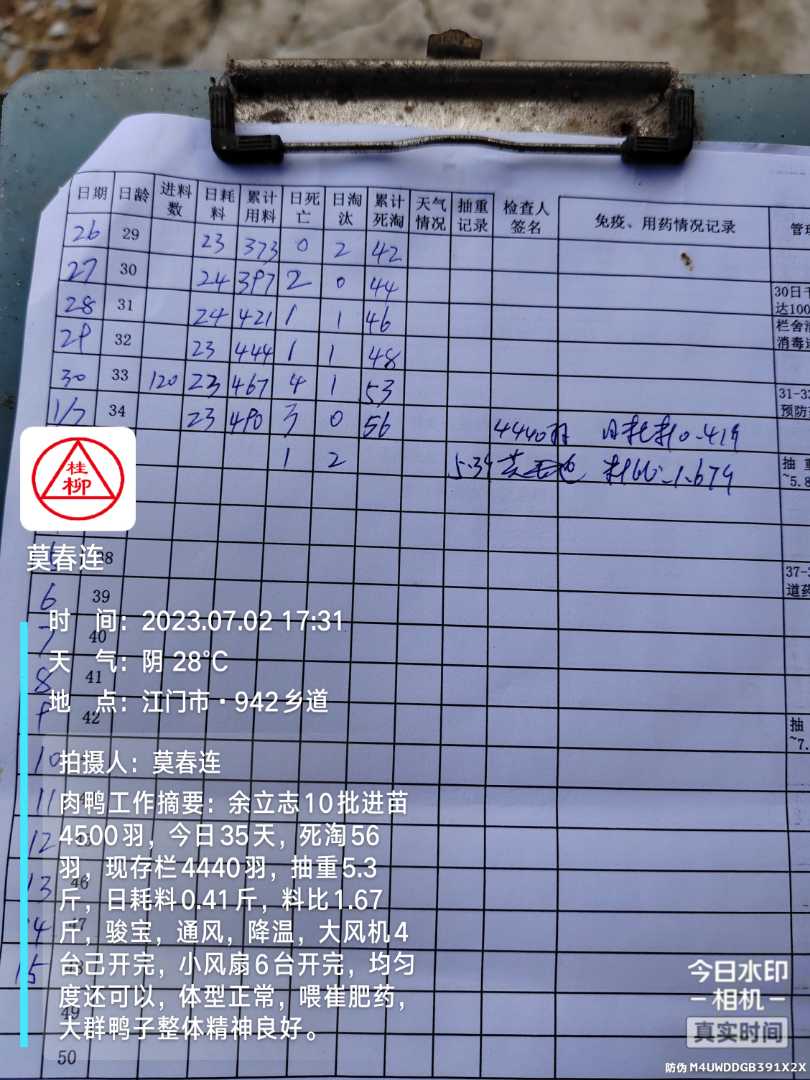 日期 日龄 进料数 日耗料 累计用料 日死亡 日淘汰 累计死淘 天气情况 抽重记录 检查人签名 免疫、用药情况记录 管理
26 29 23 373 0 2 42
27 30 24 397 2 0 44
30日
28 31 24 421 1 1 46
达100
栏舍
消毒
29 32 23 444 1 1 48
30 33 120 23 467 4 1 53
31-3
预防
1/7 34 23 490 3 0 56 4440羽 日耗料0.41斤
1 2 5.3斤 料比:1.67斤
抽 重
~5.8
桂柳
莫春连
38
37-3
道药
6 39
时 间：2023.07.02 17:31
7 40
天 气：阴 28℃
8 41
地 点：江门市·942乡道
9 42
抽
~7.
10
拍摄人：莫春连
11
肉鸭工作摘要：余立志10批进苗
12
4500羽，今日35天，死淘56
羽，现存栏4440羽，抽重5.3
13 46
斤，日耗料0.41斤，料比1.67
14 47
斤，骏宝，通风，降温，大风机4
15
台己开完，小风扇6台开完，均匀
度还可以，体型正常，喂崔肥药，
49
大群鸭子整体精神良好。
50
今日水印
相机
真实时间
防伪 M4UWDDGB391X2X